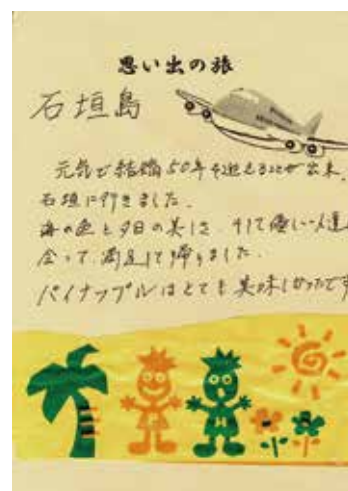 思い出の旅
石垣島
元気で結婚50年を迎えることが出来、
石垣に行きました。
海の色と夕日の美しさ、そして優しい人達
会って、満足して帰りました。
パイナップルはとても美味しかったです